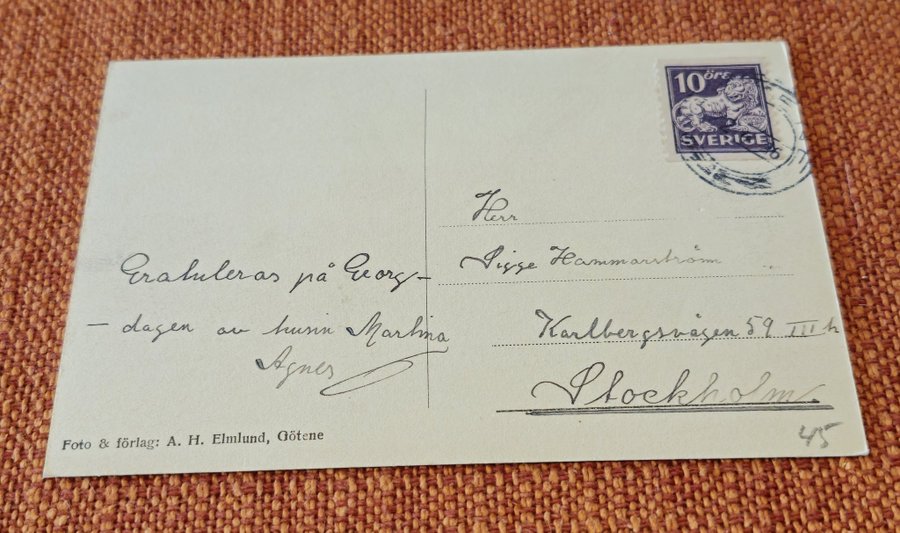 10 ÖRE
SVERIGE
Herr
Sigge Hammarström
Karlbergsvägen 59 III h
Stockholm
Gratuleras på Georg-
- dagen av kusin Martina
Agnes
Foto & förlag: A. H. Elmlund, Götene
45